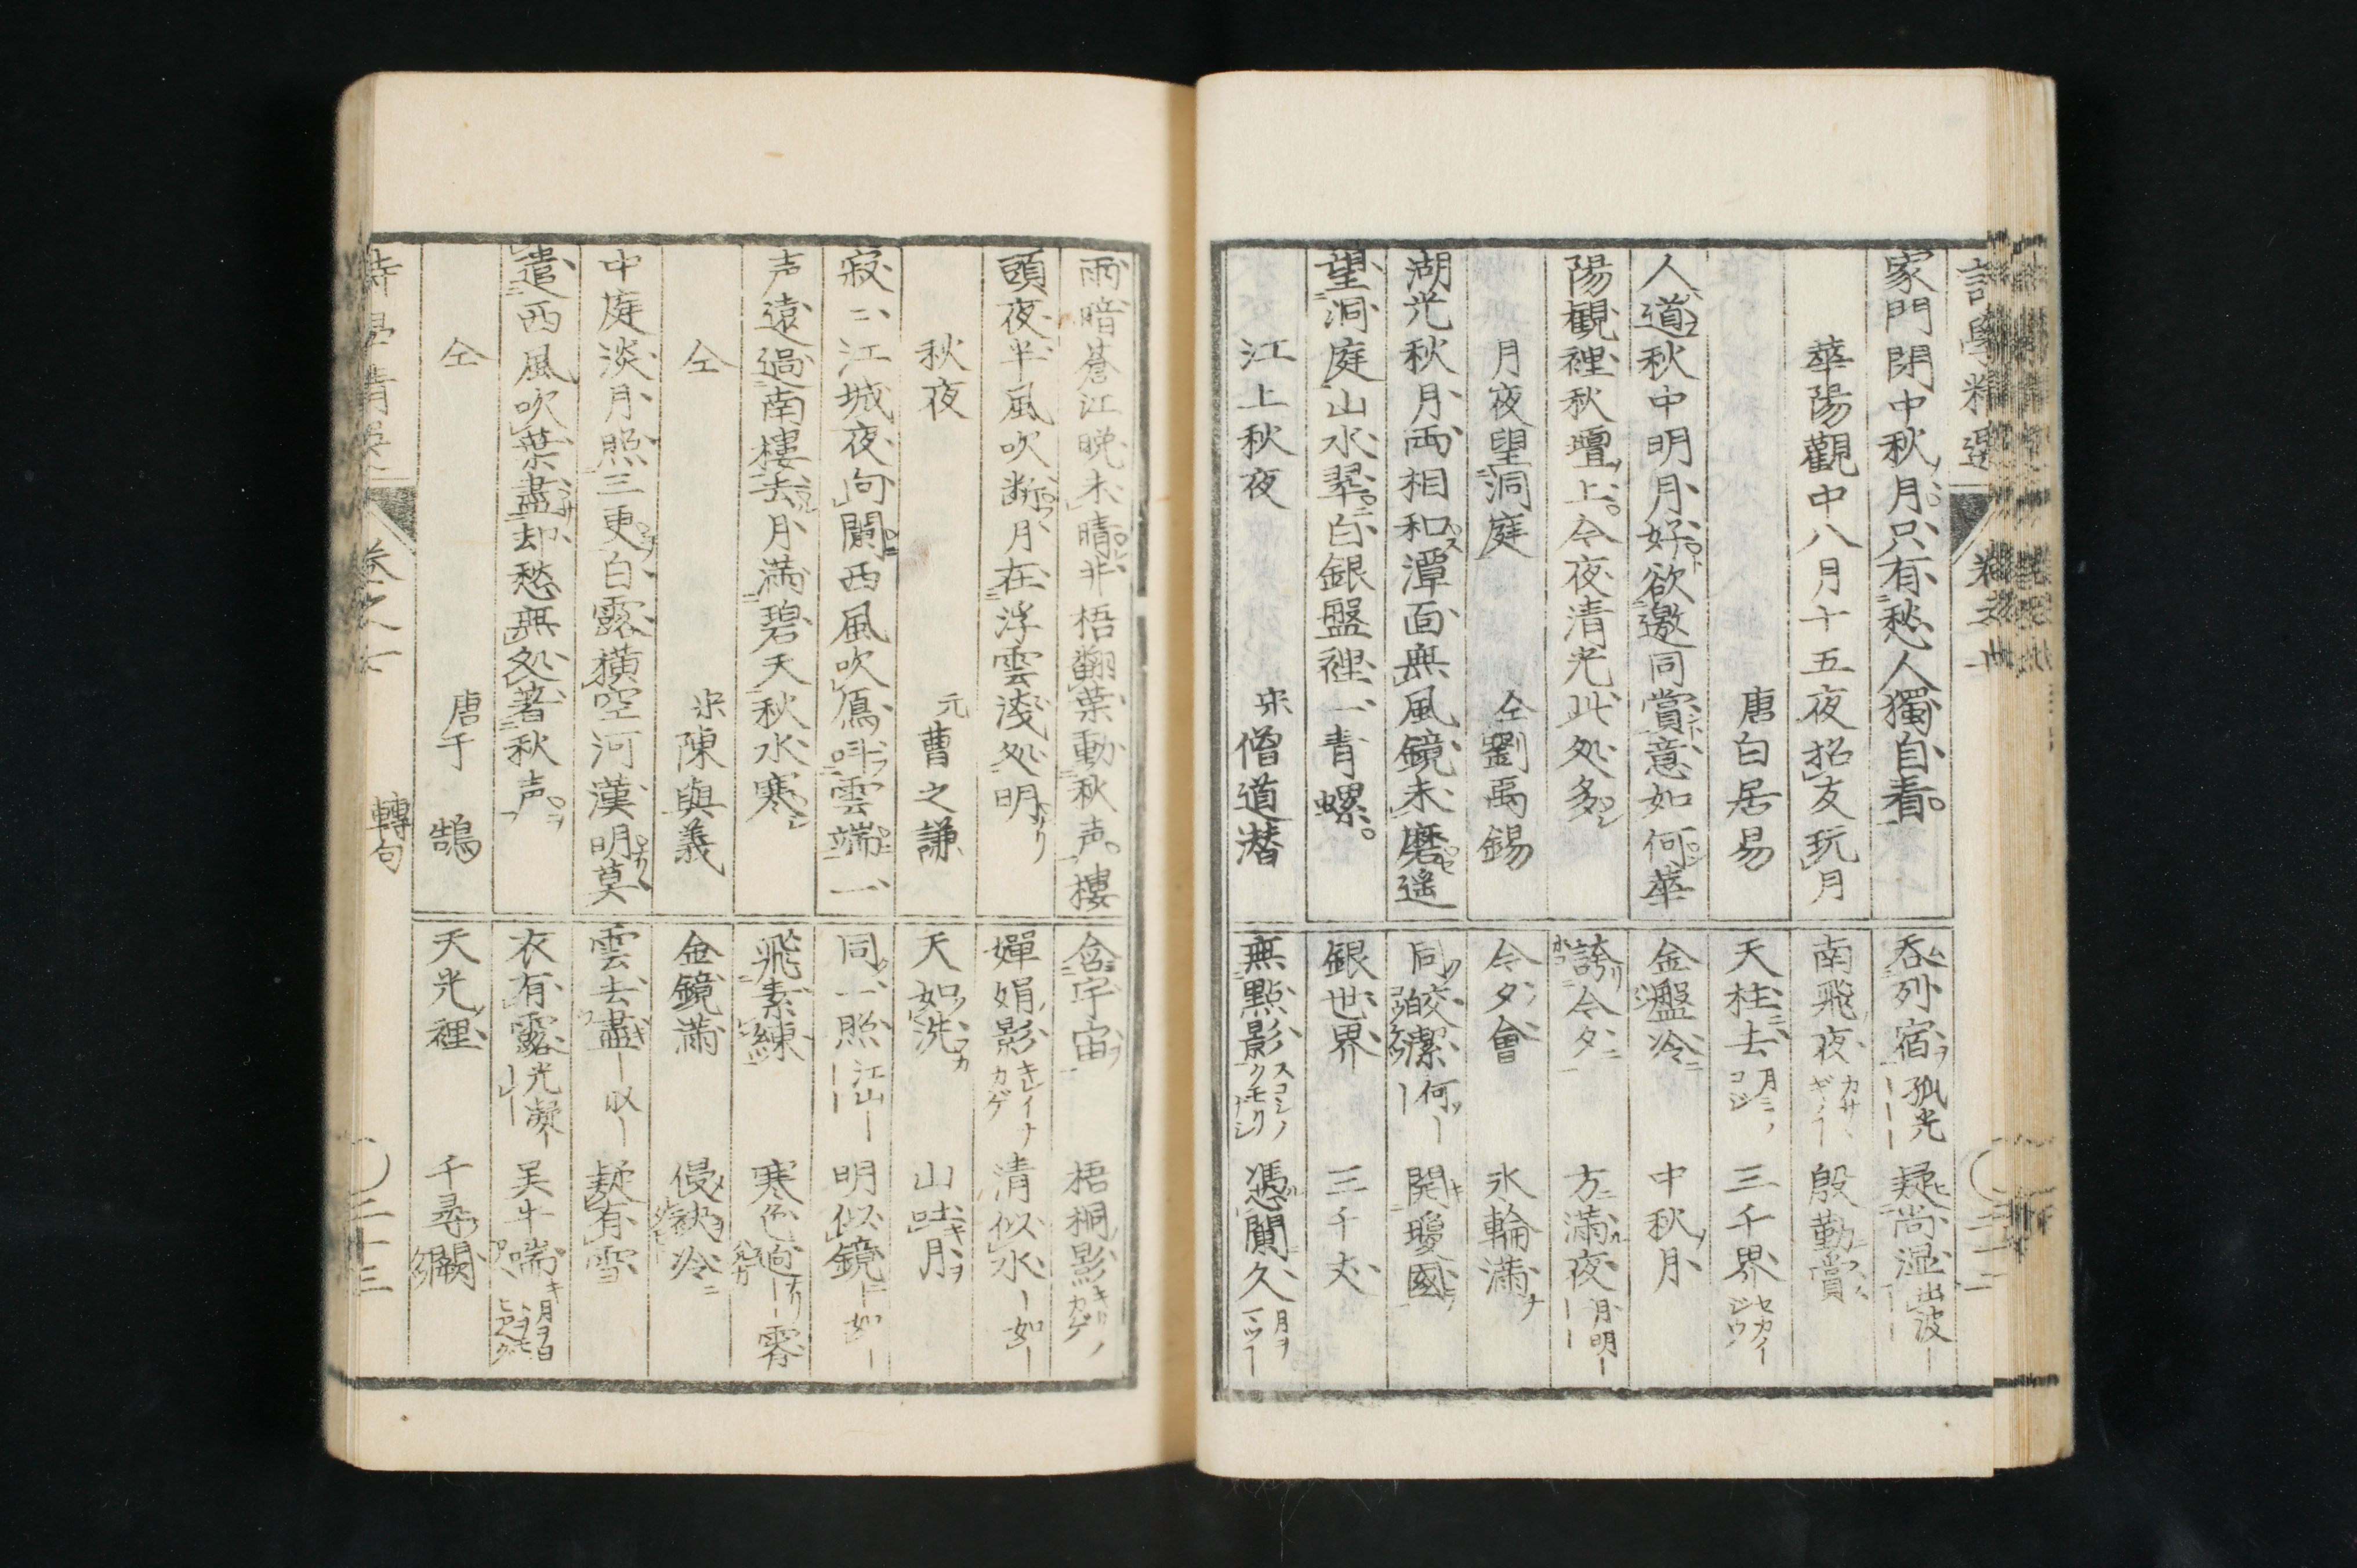 家門閉中秋月只有愁人獨自看
華陽觀中八月十五夜招友玩月
唐白居易
人道秋中明月好欲邀同賞意如何華
陽観裡秋壇上今夜清光此処多
月夜望洞庭 仝劉禹錫
湖光秋月両相和潭面無風鏡未磨遥
望洞庭山水翠白銀盤裡一青螺
江上秋夜 宋僧道潜
呑列宿 孤光 疑尚湿 出波
南飛夜 殷勤賞
天柱去 三千界
金盤冷 中秋月
誇今夕 方満夜 月明
今夕會 氷輪満
同皎潔 何 開瓊國
銀世界 三千丈
無點影 スコシノクモリナシ 憑闌久
雨暗蒼江晩未晴井梧翻葉動秋声樓
頭夜半風吹断月在浮雲浅処明
秋夜 元曹之謙
寂〻江城夜向闌西風吹鴈叫雲端一
声遠過南樓去月満碧天秋水寒
仝 宋陳與義
中庭淡月照三更白露横空河漢明莫
遣西風吹葉盡却愁無処著秋声
仝 唐于鵠
含宇宙 梧桐影 キリノカゲ
嬋娟影 キレイナカゲ 清似水 如
天如洗 山吐月
同一照 江山 明似鏡 如
飛素練 寒色迫
金鏡満 侵袂冷
雲去盡 収 疑有雪
衣有露 光凝 呉牛喘
天光裡 千尋闕
巻之七 轉句 三十三